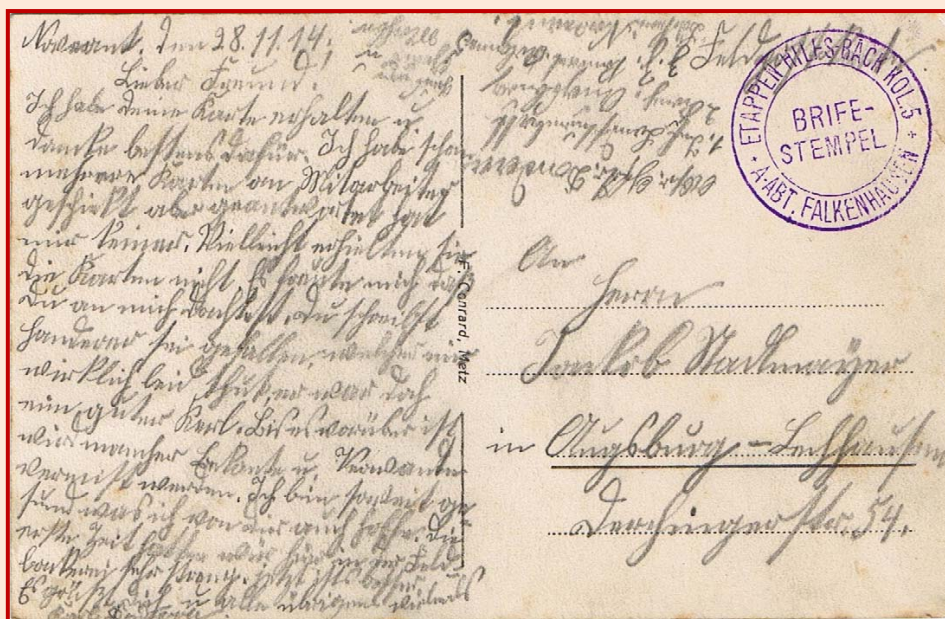 Noveant, den 28.11.14.
Lieber Freund!
Ich habe deine Karte erhalten u
danke bestens dafür. Ich habe schon
mehrere Karten an Mitarbeiter
geschickt aber geantwortet hat
mir keiner. Vielleicht erhielten sie
die Karten nicht. Es freute mich daß
Du an mich dachtest. Du schreibst
sei gefallen, welcher mir
wirklich leid thut, er war doch
ein guter Kerl. Bis es vorüber ist
wird mancher Bekante u. Verwante
vermißt werden. Ich bin soweit ge-
sund was ich von dir auch hoffe. Die
erste Zeit hatten wir hier in der Feld-
bäckerei sehr streng. jetzt ists besser.
Es grüßt dich u alle übrigen vielmals
F. Conrard, Metz
ETAPPEN-HILFS-BÄCK KOL.5
BRIFE-
STEMPEL
A-ABT. FALKENHAUSEN
An
Herrn
Jakob Stadlmayer
in Augsburg-Lechhausen
Derchingerstr. 54.